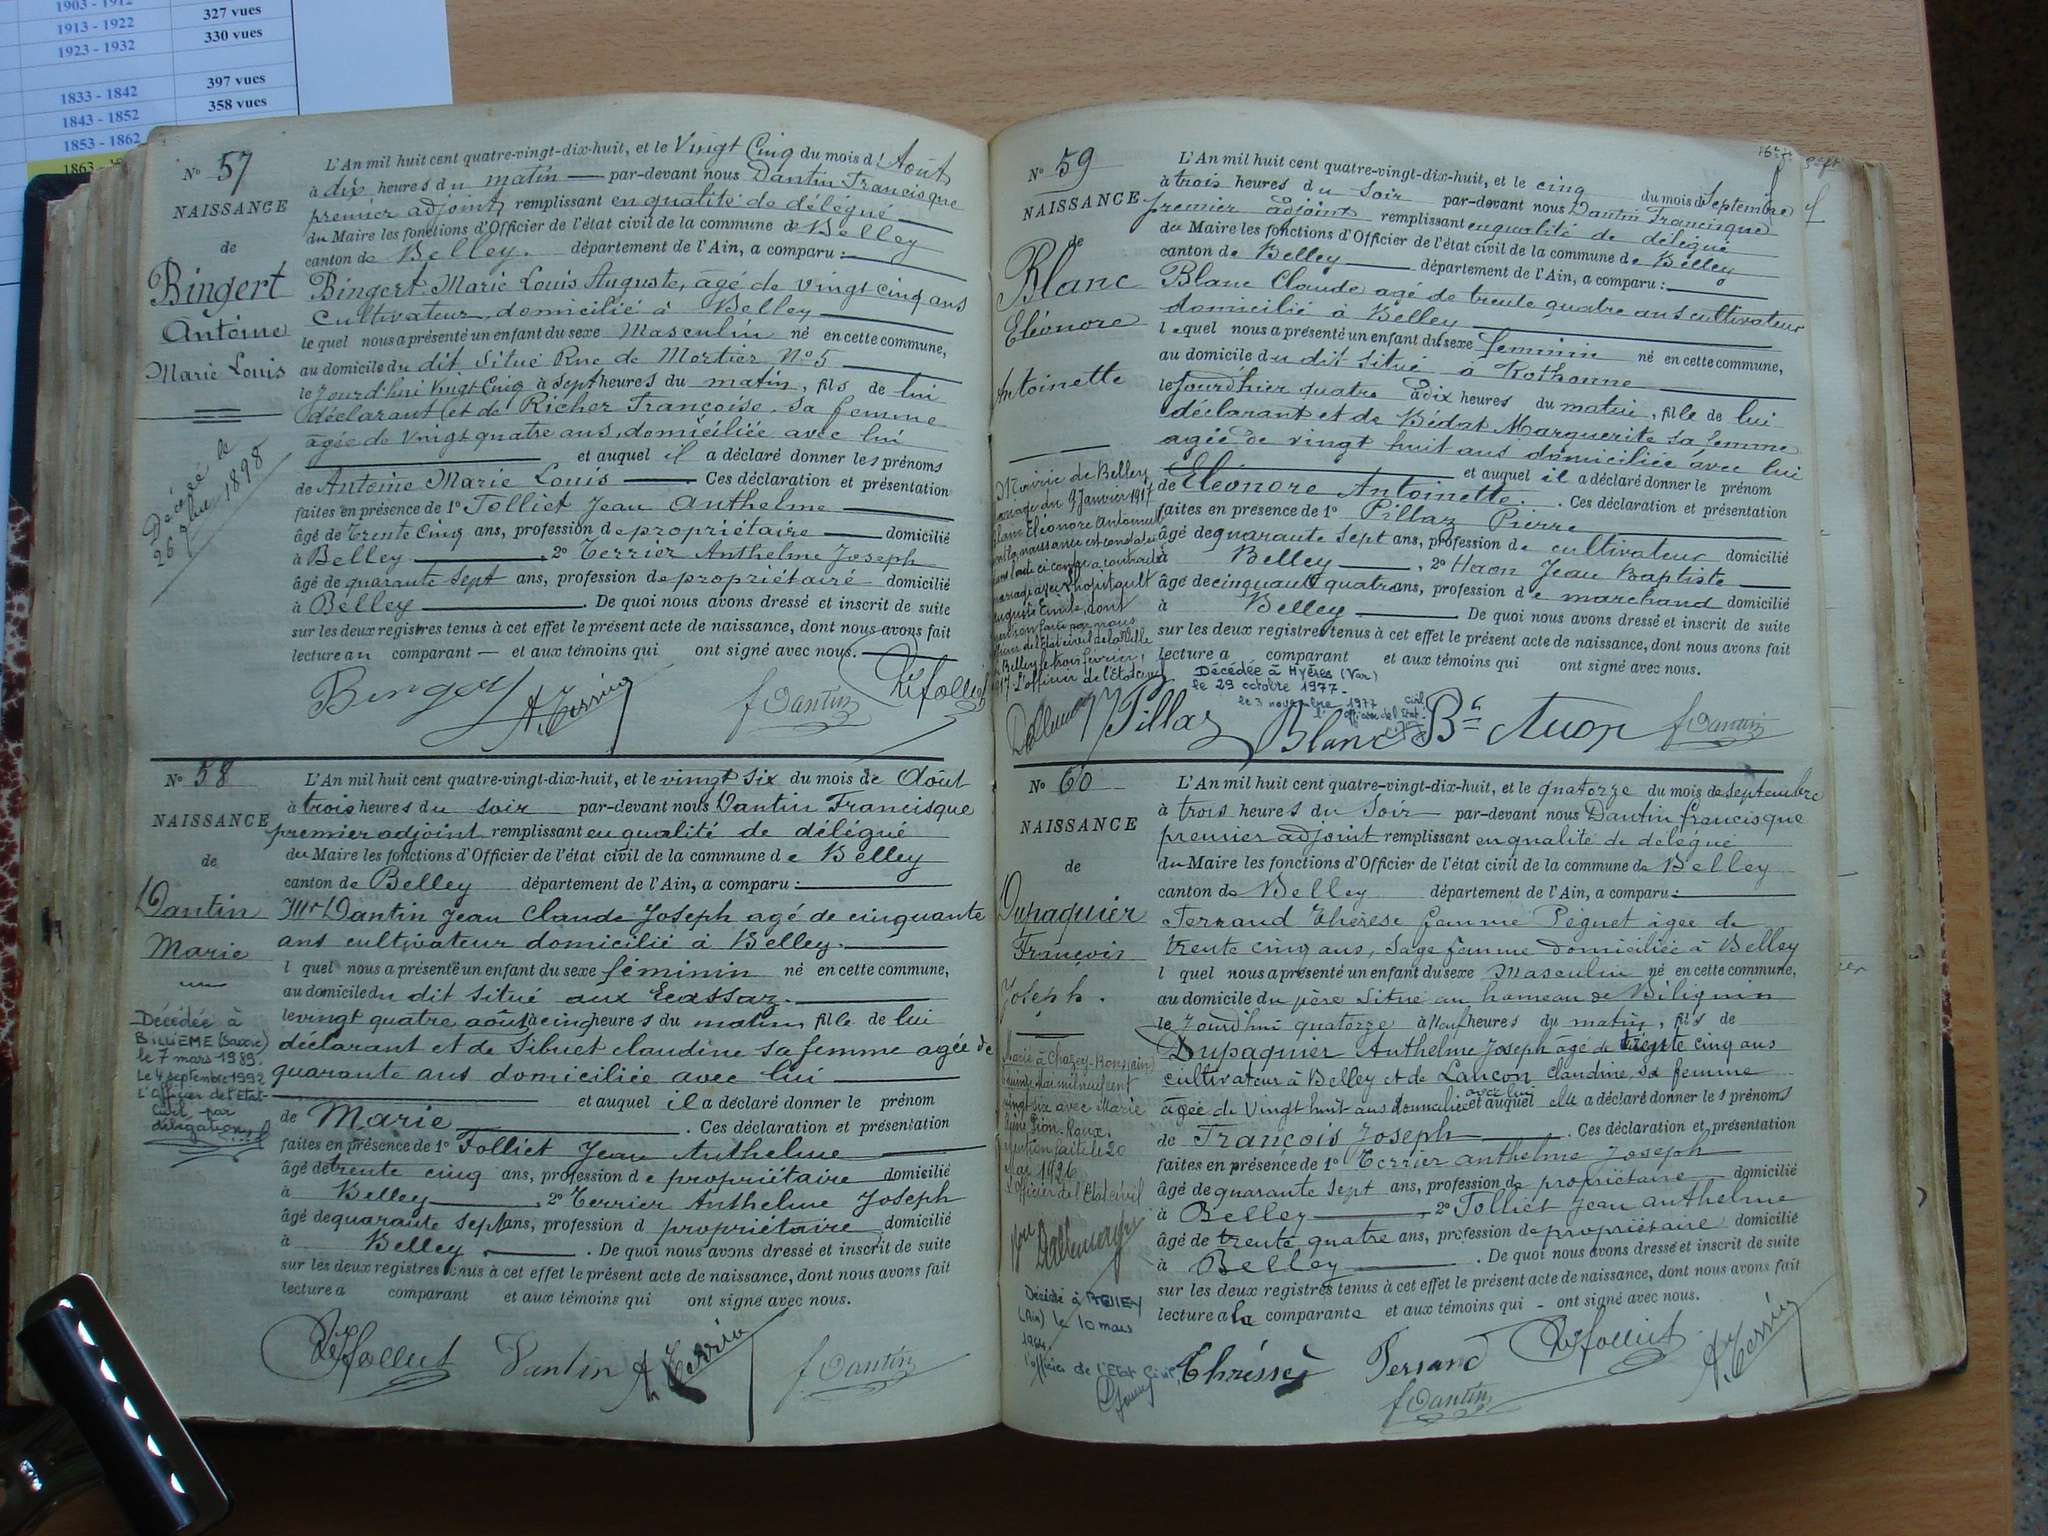 1903 - 1912
1913 - 1922 327 vues
1923 - 1932 330 vues
1833 - 1842 397 vues
1843 - 1852 358 vues
1853 - 1862
1863 -
N° 57
NAISSANCE
de
Bingert
Antoine
Marie Louis
Décédé le
26 1898
L'An mil huit cent quatre-vingt-dix-huit, et le Vingt Cinq du mois d'Août
à dix heures du matin — par-devant nous Dantin Francisque
premier adjoint remplissant en qualité de délégué
du Maire les fonctions d'Officier de l'état civil de la commune de Belley
canton de Belley. département de l'Ain, a comparu :
Bingert Marie Louis Auguste, agé de vingt cinq ans
cultivateur domicilié à Belley
le quel nous a présenté un enfant du sexe Masculin né en cette commune,
au domicile du dit situé Rue de Mortier N° 5
le Jourd'hui Vingt Cinq à Sept heures du matin, fils de lui
déclarant et de Richer Françoise sa femme
agée de vingt quatre ans, domiciliée avec lui
et auquel il a déclaré donner les prénoms
de Antoine Marie Louis — Ces déclaration et présentation
faites en présence de 1° Folliet Jean Anthelme
âgé de trente cinq ans, profession de propriétaire — domicilié
à Belley — 2° Terrier Anthelme Joseph
âgé de quarante sept ans, profession de propriétaire domicilié
à Belley — . De quoi nous avons dressé et inscrit de suite
sur les deux registres tenus à cet effet le présent acte de naissance, dont nous avons fait
lecture au comparant — et aux témoins qui ont signé avec nous.
Bingert A. Terrier f Dantin Folliet
N° 58
NAISSANCE
de
Dantin
Marie
Décédée à
BILLIEME (Savoie)
le 7 mars 1989.
Le 4 septembre 1992
L'Officier de l'Etat-
Civil par
délégation,
L'An mil huit cent quatre-vingt-dix-huit, et le vingt six du mois de Août
à trois heures du soir par-devant nous Dantin Francisque
premier adjoint remplissant en qualité de délégué
du Maire les fonctions d'Officier de l'état civil de la commune de Belley
canton de Belley département de l'Ain, a comparu :
Mr Dantin Jean Claude Joseph agé de cinquante
ans cultivateur domicilié à Belley.
l quel nous a présenté un enfant du sexe féminin né en cette commune,
au domicile du dit situé aux Ecassaz.
le vingt quatre août à cinq heures du matin, fille de lui
déclarant et de Sibuet claudine sa femme agée de
quarante ans domiciliée avec lui
et auquel il a déclaré donner le prénom
de Marie . Ces déclaration et présentation
faites en présence de 1° Folliet Jean Anthelme
âgé de trente cinq ans, profession de propriétaire domicilié
à Belley — 2° Terrier Anthelme Joseph
âgé de quarante Sept ans, profession d propriétaire domicilié
à Belley . De quoi nous avons dressé et inscrit de suite
sur les deux registres tenus à cet effet le présent acte de naissance, dont nous avons fait
lecture a comparant et aux témoins qui ont signé avec nous.
Folliet Dantin A. Terrier f Dantin
N° 59
NAISSANCE
de
Blanc
Eléonore
Antoinette
Mairie de Belley
mariage du 9 Janvier 1917
Blanc Eléonore Antoinette
dont la naissance est constatée
dans l'acte ci contre a contracté
mariage avec Lhopitault
Auguste Emile, dont
mention faite par nous
officier de l'état civil de la ville
de Belley le trois février
1917 L'officier de l'état civil
Dallemagne
L'An mil huit cent quatre-vingt-dix-huit, et le cinq du mois de Septembre
à trois heures du Soir par-devant nous Dantin Francisque
premier adjoint remplissant en qualité de délégué
du Maire les fonctions d'Officier de l'état civil de la commune de Belley
canton de Belley — département de l'Ain, a comparu :
Blanc Claude agé de trente quatre ans cultivateur
domicilié à Belley
le quel nous a présenté un enfant du sexe feminin né en cette commune,
au domicile du dit situé à Rothonne
le Jourd'hier quatre à dix heures du matin, fille de lui
déclarant et de Bédat Marguerite sa femme
agée de vingt huit ans domiciliée avec lui
et auquel il a déclaré donner le prénom
de Eléonore Antoinette. . Ces déclaration et présentation
faites en présence de 1° Pillaz Pierre
âgé de quarante sept ans, profession de cultivateur domicilié
à Belley — , 2° Haon Jean Baptiste
âgé de cinquante quatre ans, profession de marchand domicilié
à Belley — De quoi nous avons dressé et inscrit de suite
sur les deux registres tenus à cet effet le présent acte de naissance, dont nous avons fait
lecture a comparant et aux témoins qui ont signé avec nous.
Décédée à Hyères (Var)
le 29 octobre 1977.
le 3 novembre 1977
l'officier de l'Etat-civil
Pillaz Blanc Bte Auon f Dantin
N° 60
NAISSANCE
de
Dupaquier
François
Joseph.
Marié à Chazey-Bons (Ain)
mai mil neuf cent
vingt six avec Marie
Pion-Roux.
mention faite le 20
Mai 1926
L'officier de l'Etat civil
Dallemagne
Décédé à BELLEY
(Ain) le 10 mars
l'officier de l'Etat Civil,
L'An mil huit cent quatre-vingt-dix-huit, et le quatorze du mois de septembre
à trois heures du Soir par-devant nous Dantin francisque
premier adjoint remplissant en qualité de délégué
du Maire les fonctions d'Officier de l'état civil de la commune de Belley
canton de Belley département de l'Ain, a comparu :
Ferrand Thérèse femme Péguet agée de
trente cinq ans, Sage femme domiciliée à Belley
l quel nous a présenté un enfant du sexe Masculin né en cette commune,
au domicile du père Situé au hameau de Bilignin
le Jourd'hui quatorze à Neuf heures du matin, fils de
Dupaquier Anthelme Joseph âgé de trente cinq ans
cultivateur à Belley et de Lançon Claudine sa femme
âgée de Vingt huit ans domiciliée avec lui et auquel elle a déclaré donner les prénoms
de François Joseph — . Ces déclaration et présentation
faites en présence de 1° Terrier anthelme Joseph
âgé de quarante sept ans, profession de propriétaire domicilié
à Belley — , 2° Folliet Jean anthelme
âgé de trente quatre ans, profession de propriétaire domicilié
à Belley — . De quoi nous avons dressé et inscrit de suite
sur les deux registres tenus à cet effet le présent acte de naissance, dont nous avons fait
lecture a la comparante et aux témoins qui - ont signé avec nous.
Ferrand Folliet A. Terrier
f Dantin